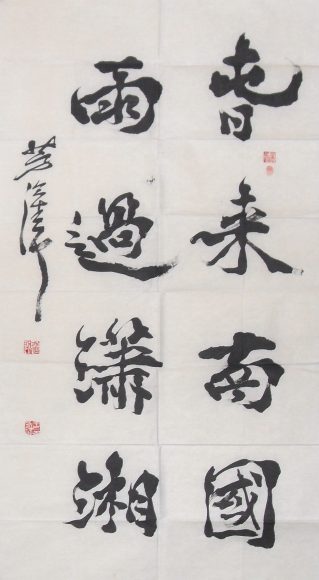 春来南國
雨過瀟湘